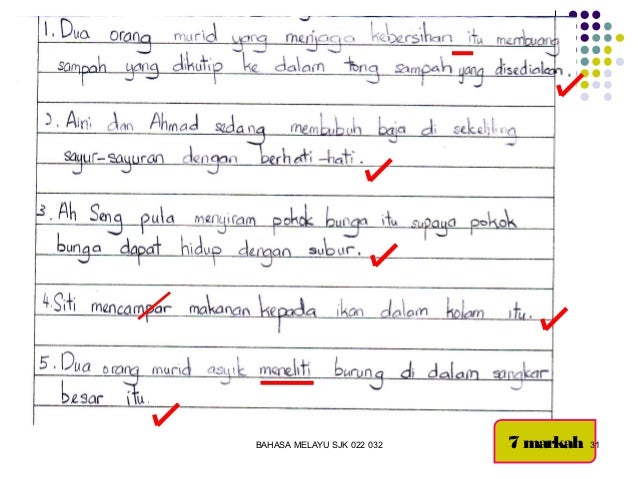 1. Dua orang murid yang menjaga kebersihan itu membuang
sampah yang dikutip ke dalam tong sampah yang disediakan.
2. Aini dan Ahmad sedang membubuh baja di sekeliling
sayur-sayuran dengan berhati-hati.
3. Ah Seng pula menyiram pokok bunga itu supaya pokok
bunga dapat hidup dengan subur.
4. Siti mencampar makanan kepada ikan dalam kolam itu.
5. Dua orang murid asyik meneliti burung di dalam sangkar
besar itu.
BAHASA MELAYU SJK 022 032
7 markah
31